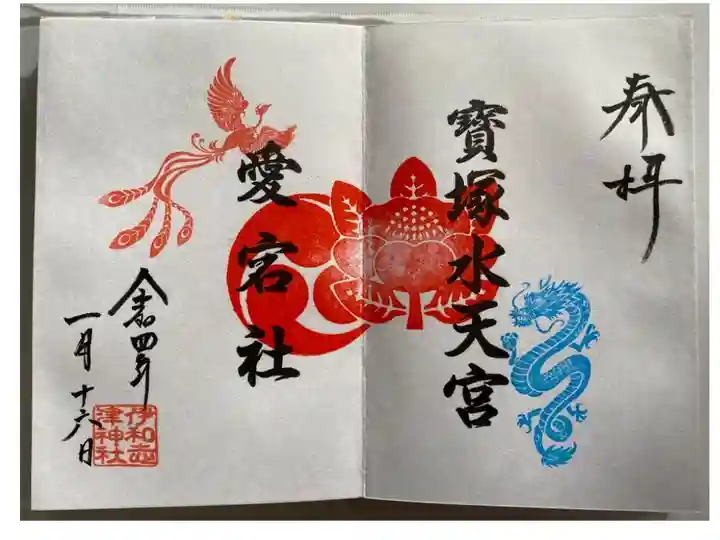 奉拝
寶塚水天宮
愛宕社
令和四年
一月十六日
伊和志
津神社